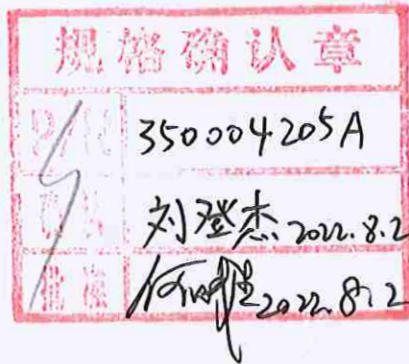 规格确认章
P/N 350004205A
刘登杰 2022.8.2
批准 何 2022.8.2